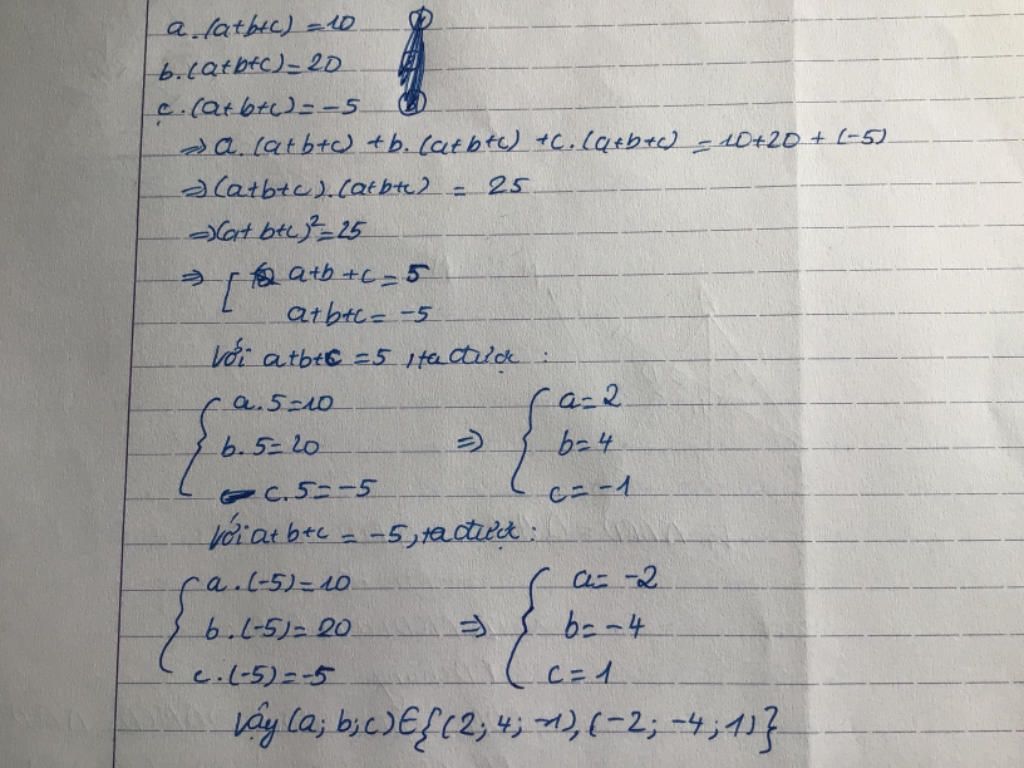 a.(a+b+c) = 10
b.(a+b+c) = 20
c.(a+b+c) = -5
⇒ a.(a+b+c) + b.(a+b+c) + c.(a+b+c) = 10+20 + (-5)
⇒ (a+b+c).(a+b+c) = 25
⇒ (a+b+c)² = 25
⇒ [ a+b+c = 5
a+b+c = -5
Với a+b+c = 5, ta được :
{ a.5 = 10 ⇒ { a = 2
b.5 = 20 b = 4
c.5 = -5 c = -1
Với a+b+c = -5, ta được :
{ a.(-5) = 10 ⇒ { a = -2
b.(-5) = 20 b = -4
c.(-5) = -5 c = 1
Vậy (a; b; c) ∈ {(2; 4; -1), (-2; -4; 1)}